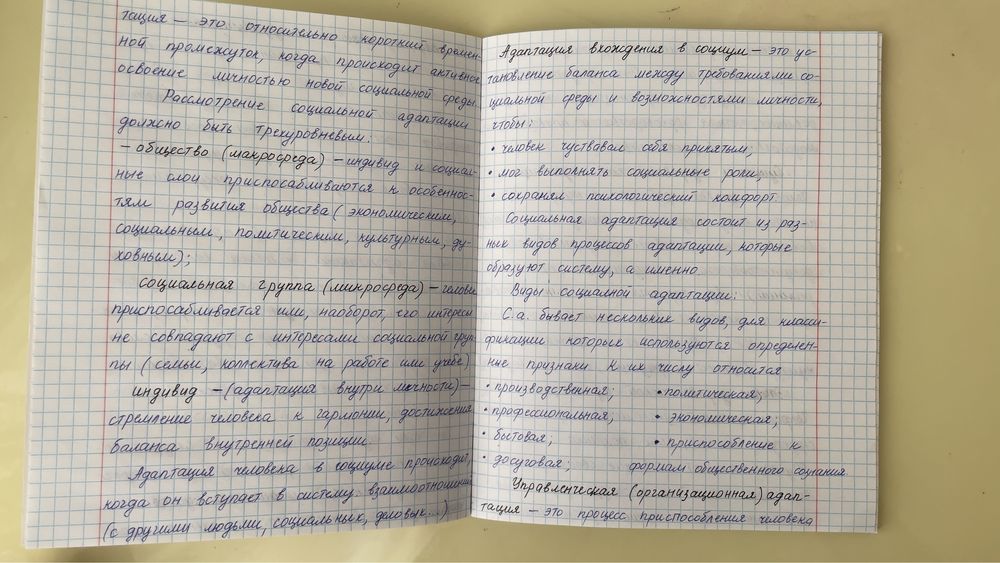 тация — это относительно короткий времен-
ной промежуток, когда происходит активное
освоение личностью новой социальной среды.
Рассмотрение социальной адаптации
должно быть трехуровневым:
– общество (макросреда) – индивид и социаль-
ные слои приспосабливаются к особеннос-
тям развития общества (экономическим,
социальным, политическим, культурным, ду-
ховным);
социальная группа (микросреда) – человек
приспосабливается или, наоборот, его интересы
не совпадают с интересами социальной груп-
пы (семьи, коллектива на работе или учебе)
индивид – (адаптация внутри личности) –
стремление человека к гармонии, достижения
баланса внутренней позиции.
Адаптация человека в социуме происходит,
когда он вступает в систему взаимоотношений
(с другими людьми, социальных, деловых...)
Адаптация вхождения в социум – это ус-
тановление баланса между требованиями со-
циальной среды и возможностями личности,
чтобы:
• человек чуствавал себя принятым;
• мог выполнять социальные роли;
• сохранял психологический комфорт
Социальная адаптация состоит из раз-
ных видов процессов адаптации, которые
образуют систему, а именно
Виды социалной адаптации:
С.а. бывает нескольких видов, для класси-
фикации которых используются определен-
ные признаки К их числу относится
• производственная; • политическая;
• профессиональная; • экономическая;
• бытовая; • приспособление к
• досуговая; формам общественного сознания
Управленческая (организационная) адап-
тация – это процесс приспособления человека